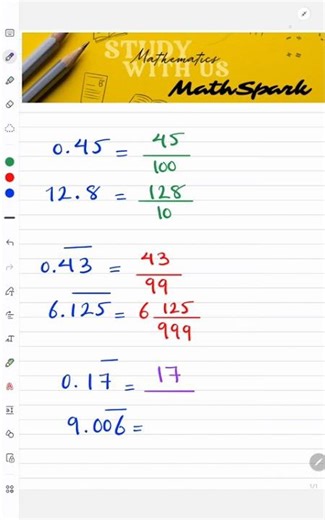 STUDY
Mathematics
WITH US
MathSpark
0.45 = 45/100
12.8 = 128/10
0.4̅3̅ = 43/99
6.1̅2̅5̅ = 6 125/999
0.17̅ = 17/
9.00̅6̅ =
1/1